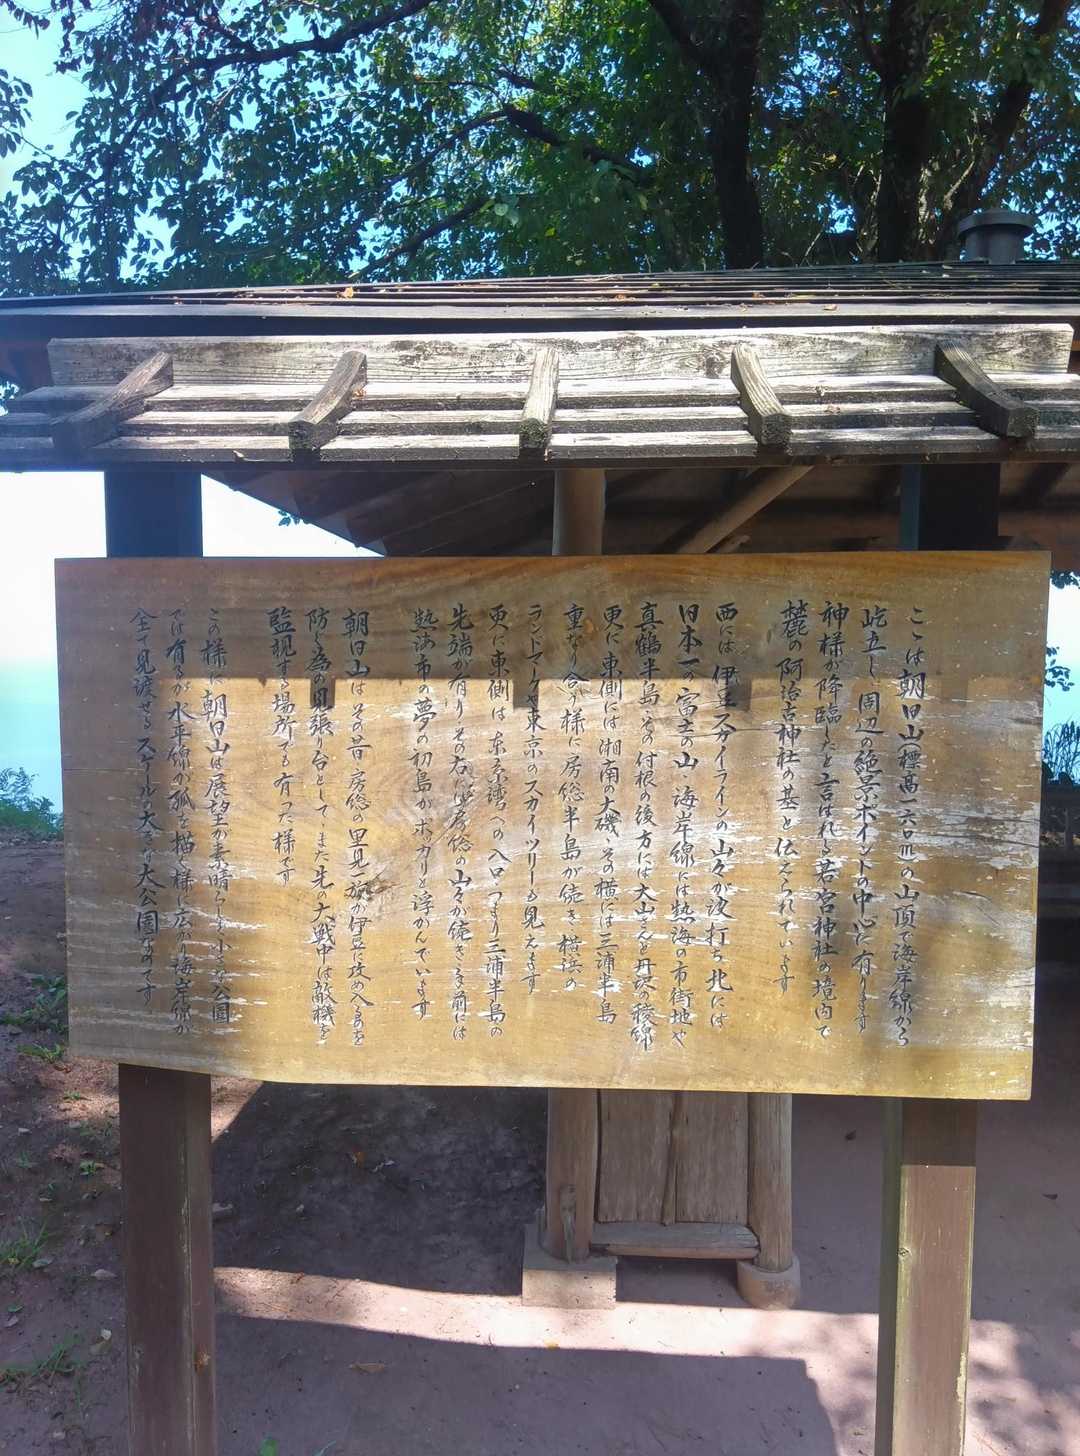 ここは朝日山(標高一六〇m)の山頂で海岸線から
屹立し 周辺の絶景ポイントの中心に有ります
神様が降臨したと言はれる若宮神社の境内で
麓の阿治古神社の基と伝えられています
西には 伊豆スカイラインの山々が波打ち 北には
日本一の富士の山、海岸線には熱海の市街地や
真鶴半島、その付根の後方には大山さんと丹沢の稜線
更に東側には湘南の大磯、その横には三浦半島
重なり合う様に房総半島が続き 横浜の
ランドマークや東京のスカイツリーも見えます
更に東側は 東京湾への入口 つまり三浦半島の
先端が有り その右には房総の山々が続き 手前には
熱海市の夢の初島がポッカリと浮かんでいます
朝日山はその昔 房総の里見一族が伊豆に攻め入るのを
防ぐ為の見張り台として また先の大戦中は敵機を
監視する場所でも有った様です
この様に 朝日山は展望が素晴らしく小さな公園
では有るが水平線が弧を描く様に広がり海岸線が
全て見渡せる スケールの大きな大公園なのです